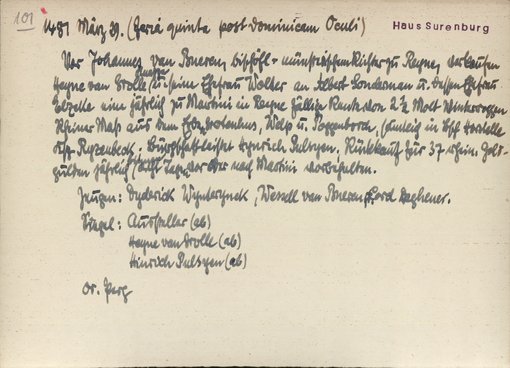 101
1481 März 29. (feria quinta post dominicam Oculi)
Haus Surenburg
Vor Johannes van Bueren, bischöfl. münstrischem Richter zu Reyne, verkaufen
Heyne van Drolle u. seine Ehefrau Wolber an Albert Sonderman u. dessen Ehefrau
eine jährlich zu Martini in Reyne fällige Rente von 2 1/2 Molt Winterroggen
Rheiner Mass aus dem Erbe, Welp u. Poggenborch, in Kspl
Bürgschaft leistet Hynrich Bulsyen. Rückkauf für 37 rhein. Gold-
gulden jährlich acht Tage vor oder nach Martini vorbehalten.
Zeugen: Dyderick, Wessell van Bueren, Cord
Siegel: Aussteller (ab)
Heyne van Drolle (ab)
Hinrich Bulsyen (ab)
Or. Perg